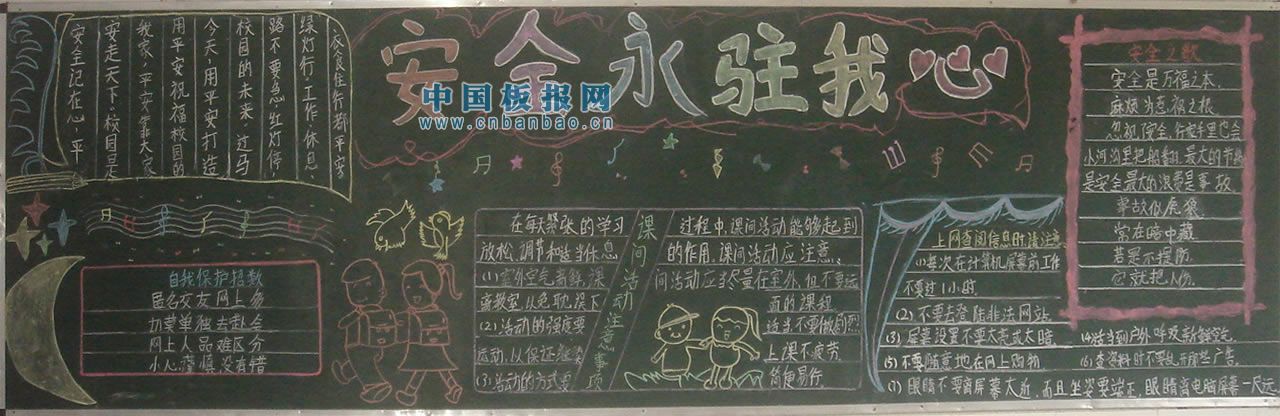 安全永驻我心
中国板报网
www.cnbanbao.cn
衣食住行都平安
绿灯行。工作、休息
路不要急。红灯停，
校园的未来。过马
今天，用平安打造
用平安祝福校园的
我家，平安靠大家
安走天下。校园是
安全记在心，平
自我保护招数
匿名交友网上多
切莫单独去赴会
网上人品难区分
小心谨慎没有错
课间活动注意事项
在每天紧张的学习
放松、调节和适当休息
(1)室外空气新鲜，课
离教室，以免耽误下
(2)活动的强度要
运动，以保证继续
(3)活动的方式要
过程中，课间活动能够起到
的作用。课间活动应注意：
间活动应当尽量在室外，但不要远
面的课程。
适当不要做剧烈
上课不疲劳。
简便易行。
上网查阅信息时请注意：
(1)每次在计算机屏幕前工作
不要过1小时。
(2)不要去登陆非法网站。
(3)屏幕设置不要太亮或太暗。
(4)适当到户外呼吸新鲜空气。
(5)不要随意地在网上购物
(6)查资料时不要乱开那些广告。
(7)眼睛不要离屏幕太近，而且坐姿要端正，眼睛离电脑屏幕一尺远
安全之歌
安全是万福之本
麻烦为惹祸之根
忽视了安全，行驶手里也会
小河沟里把船翻，最大的节
是安全最大的浪费是事故。
事故似虎狼
常在暗中藏
若是不提防
它就把人伤。